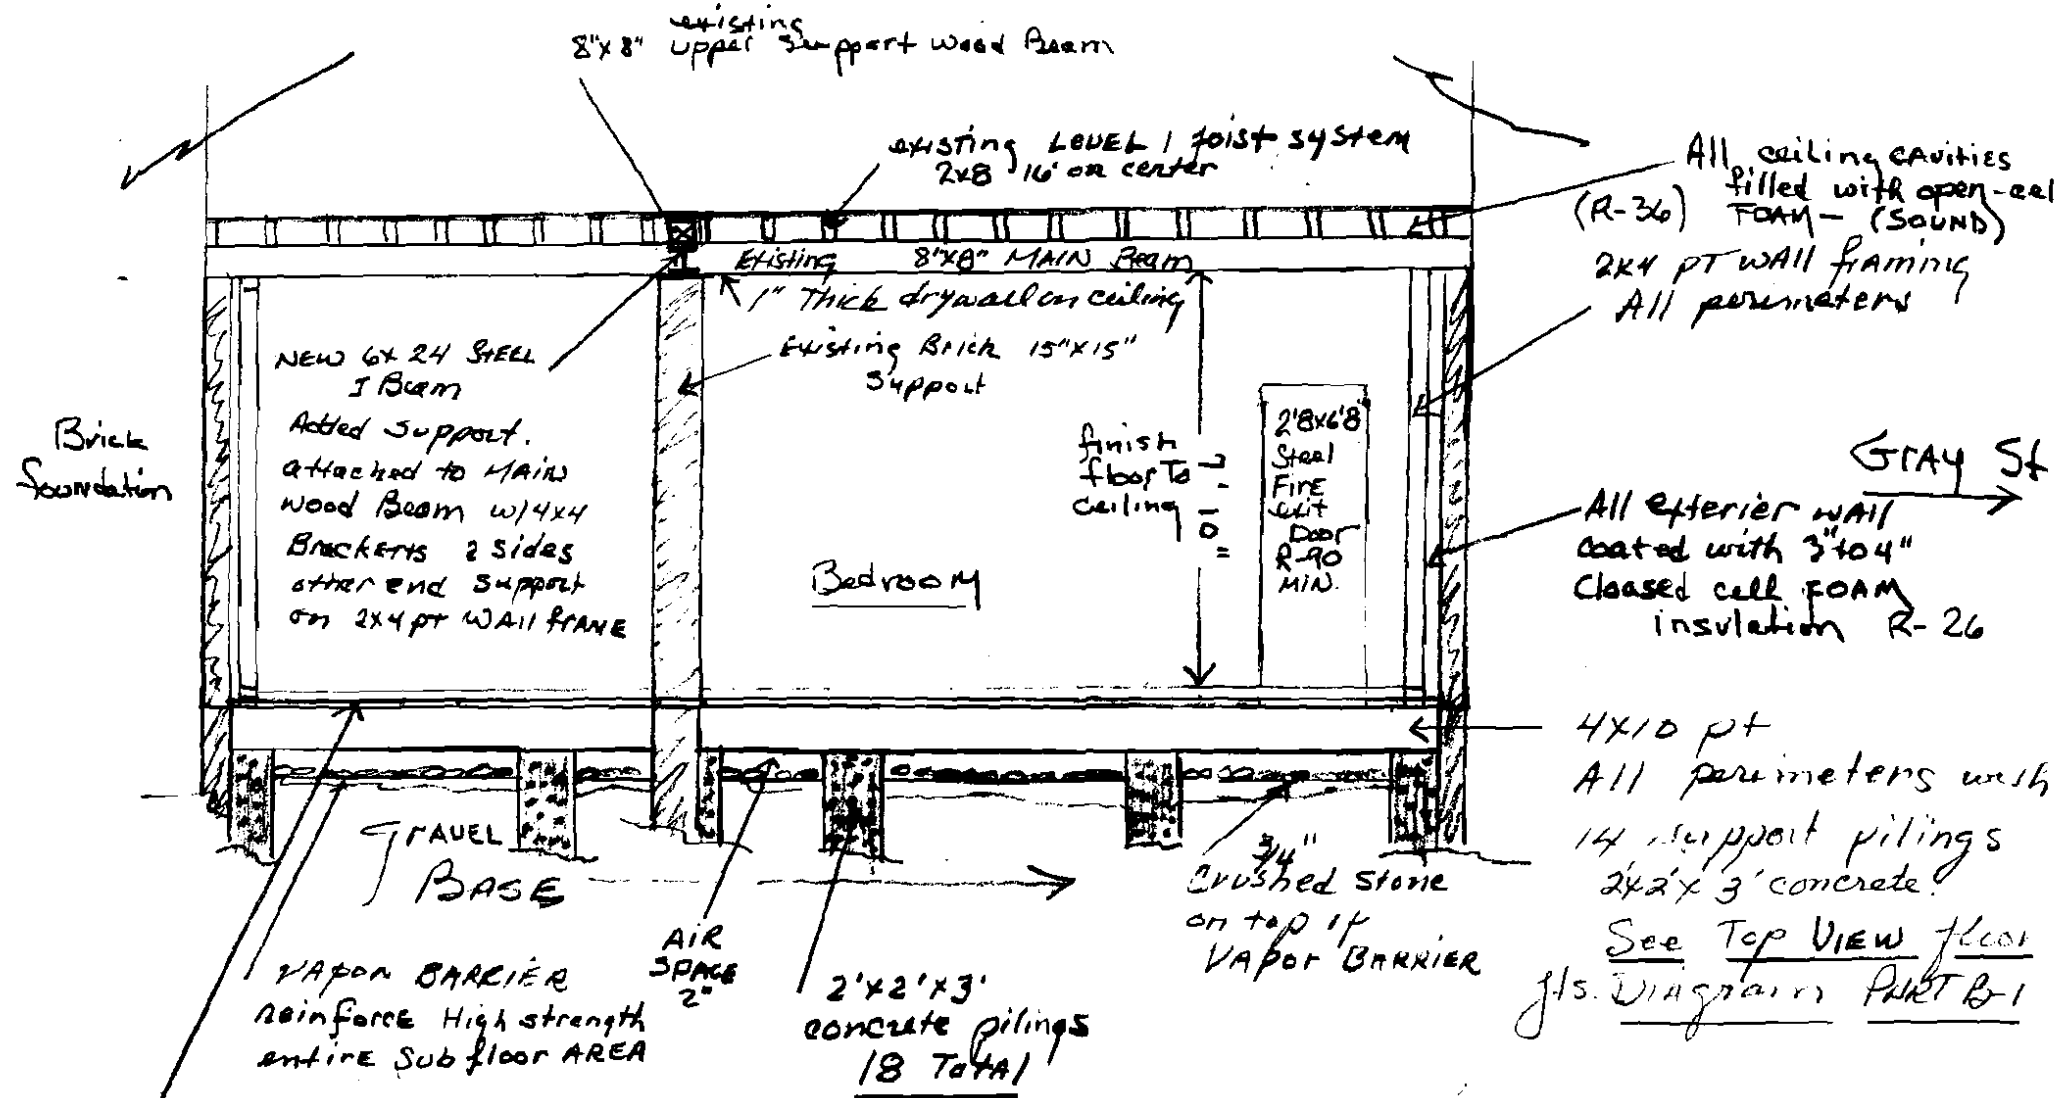 existing
8"x8" upper Support Wood Beam
existing LEVEL 1 joist system
2x8 16' on center
All ceiling cavities
filled with open-cel
(R-36) FOAM - (SOUND)
2x4 PT WALL framing
All perimeters
Existing 8"x8" MAIN Beam
1" Thick drywall on ceiling
Existing Brick 15"x15"
Support
NEW 6x24 STEEL
I Beam
Added Support.
attached to MAIN
wood Beam w/4x4
Brackerts 2 sides
other end support
on 2x4 pt WALL FRAME
Brick
foundation
finish
floor To
ceiling
7'-10"
2'8x6'8"
Steel
Fire
exit
Door
R-90
MIN.
Bedroom
Gray St
All exterier WALL
coated with 3" to 4"
Cloased cell FOAM
insulation R-26
4x10 pt
All perimeters with
14 support pilings
2'x2'x3' concrete.
See Top VIEW floor
jts. Diagram PART B-1
GRAVEL
BASE
AIR
SPACE
2"
3/4"
Crushed Stone
on top of
VAPOR BARRIER
VAPOR BARRIER
reinforce High strength
entire Sub floor AREA
2'x2'x3'
concrete pilings
18 Total